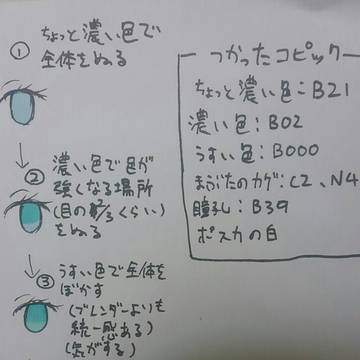 ① ちょっと濃い色で
全体をぬる
② 濃い色で色が
強くなる場所
(目の2/3くらい)
をぬる
③ うすい色で全体を
ぼかす
(ブレンダーよりも
統一感ある)
(気がする)
つかったコピック
ちょっと濃い色:B21
濃い色:B02
うすい色:B000
まぶたのカゲ:C2、N4
瞳孔:B39
ポスカの白